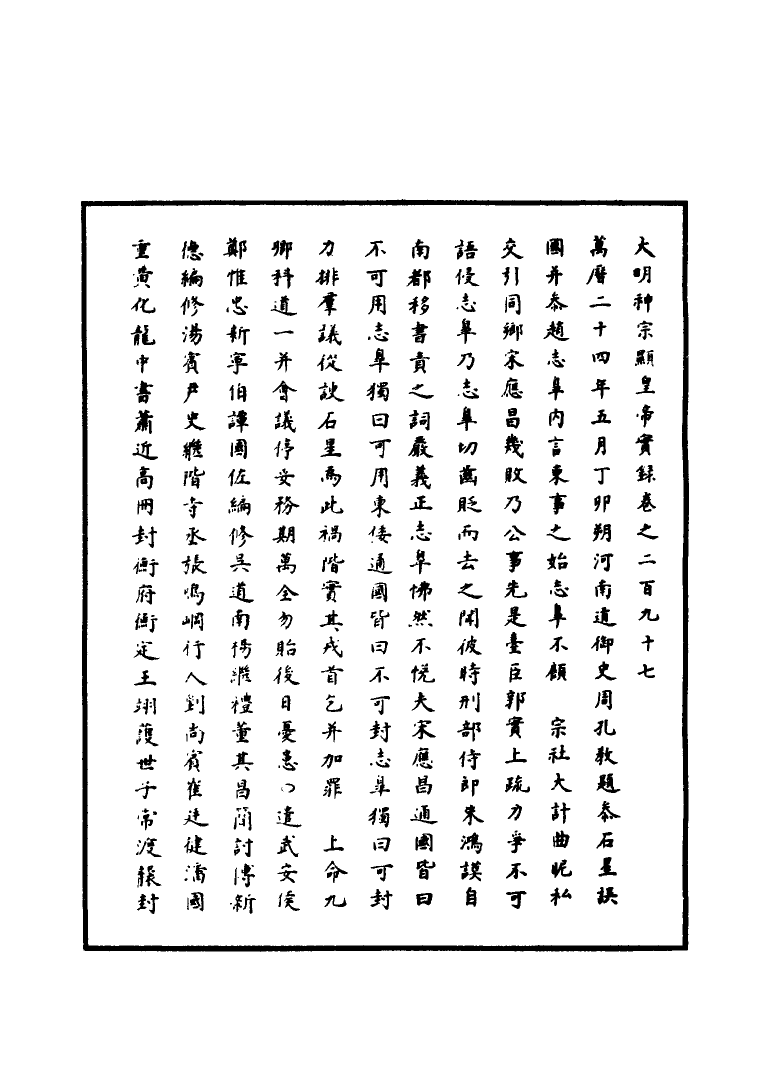 大明神宗顯皇帝實録卷之二百九十七
萬曆二十四年五月丁卯朔河南道御史周孔教題叅石星誤
國并叅趙志臯內言東事之始志臯不顧　宗社大計曲昵私
交引同鄉宋應昌幾敗乃公事先是臺臣郭實上疏力爭不可
語侵志臯乃志臯切齒貶而去之聞彼時刑部侍郎朱鴻謨自
南都移書責之詞嚴義正志臯怫然不悅夫宋應昌通國皆曰
不可用志臯獨曰可用東倭通國皆曰不可封志臯獨曰可封
力排羣議從諛石星爲此禍階實其戎首乞并加罪　上命九
卿科道一并會議停妥務期萬全勿貽後日憂患○遣武安侯
鄭惟忠新寧伯譚國佐編修吳道南楊繼禮董其昌簡討傅新
德編修湯賓尹史繼階寺丞張鳴岡行人劉尚賓崔廷健潘國
重黃化龍中書蕭近高冊封衡府衡定王翊䕶世子常㵂襲封